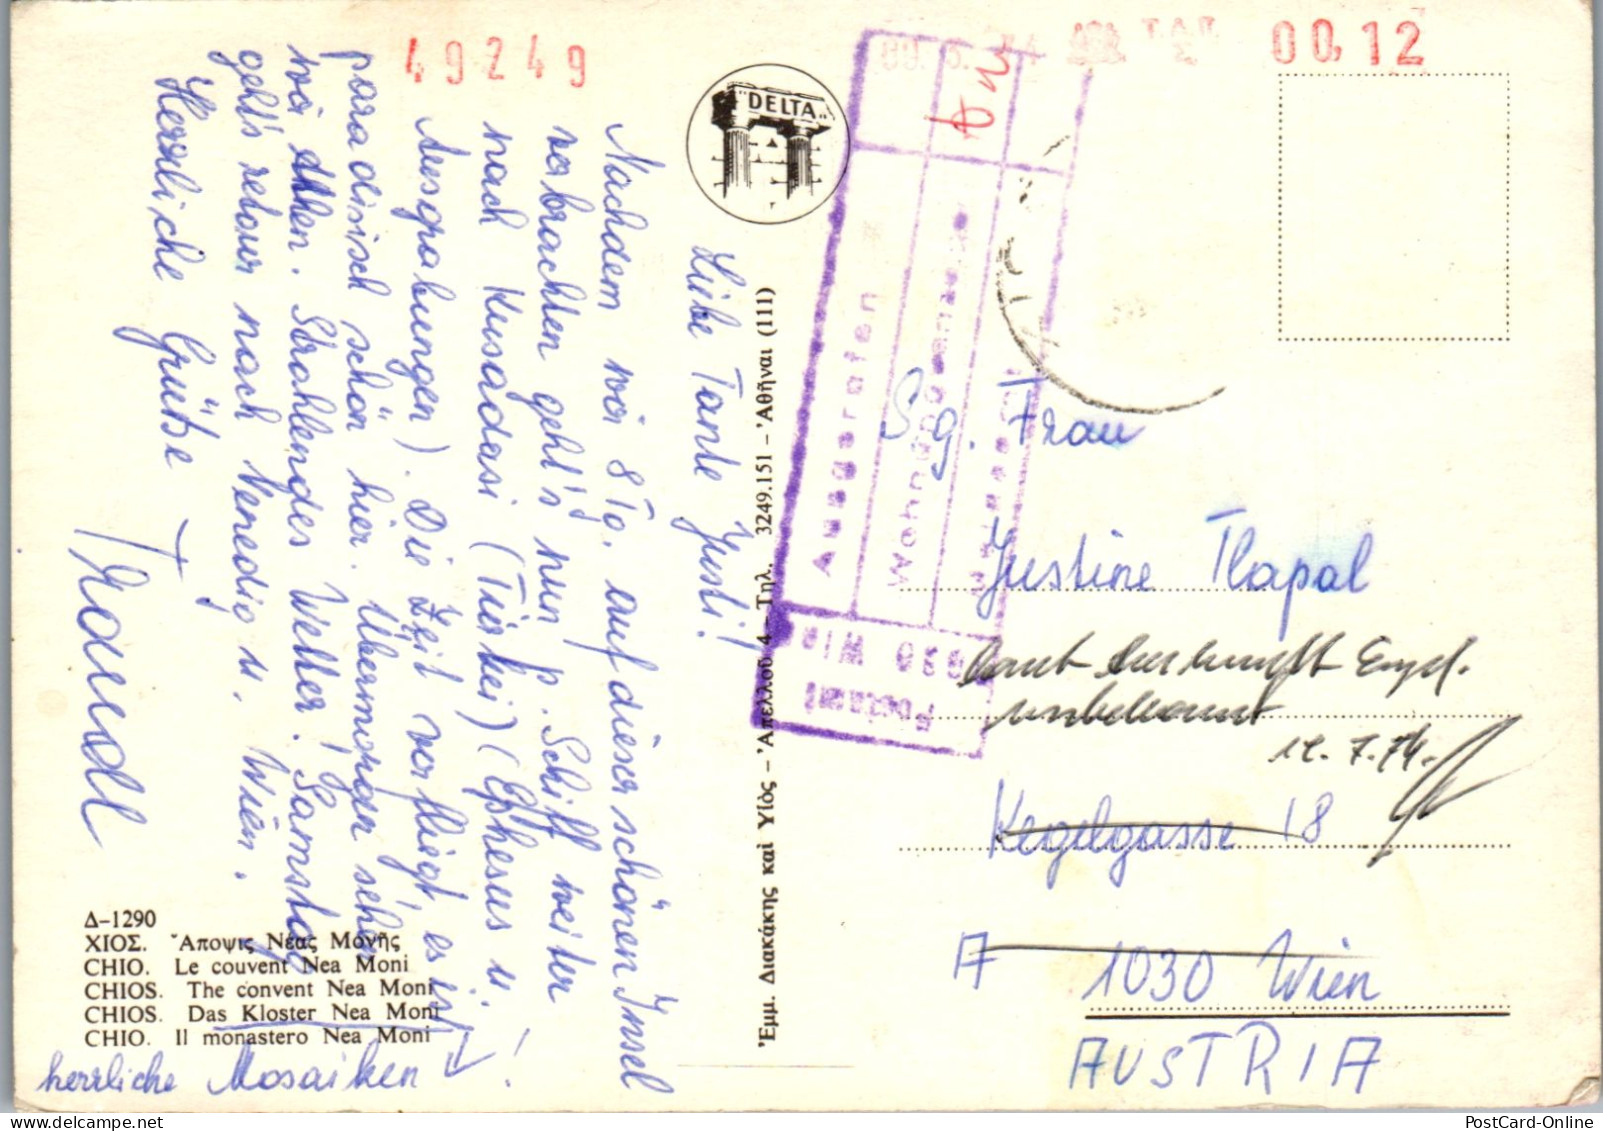 49249
00.12
"DELTA"
Liebe Tante Justi!
Nachdem wir 8 Tg. auf dieser schönen Insel
verbrachten geht's nun p. Schiff weiter
nach Kusadasi (Türkei) (Ephesus u.
Ausgrabungen). Die Zeit verfliegt, es ist
paradiesisch schön hier. Übermorgen sehen
wir Athen. Strahlendes Wetter! Samstag
geht's retour nach Venedig u. Wien.
Herzliche Grüße
Δ-1290
ΧΙΟΣ. Ἄποψις Νέας Μονῆς
CHIO. Le couvent Nea Moni
CHIOS. The convent Nea Moni
CHIOS. Das Kloster Nea Moni
CHIO. Il monastero Nea Moni
herrliche Mosaiken!
Ἐμμ. Διακάκης καὶ Υἱὸς – Ἀπελλοῦ 4 – Τηλ. 3249.151 – Ἀθῆναι (111)
Postamt
1030 Wien
Ausgerufen
S. g. Frau
Justine Tlapal
laut Auskunft
unbekannt
12.7.74
Kegelgasse 18
A 1030 Wien
AUSTRIA
PostCard-Online